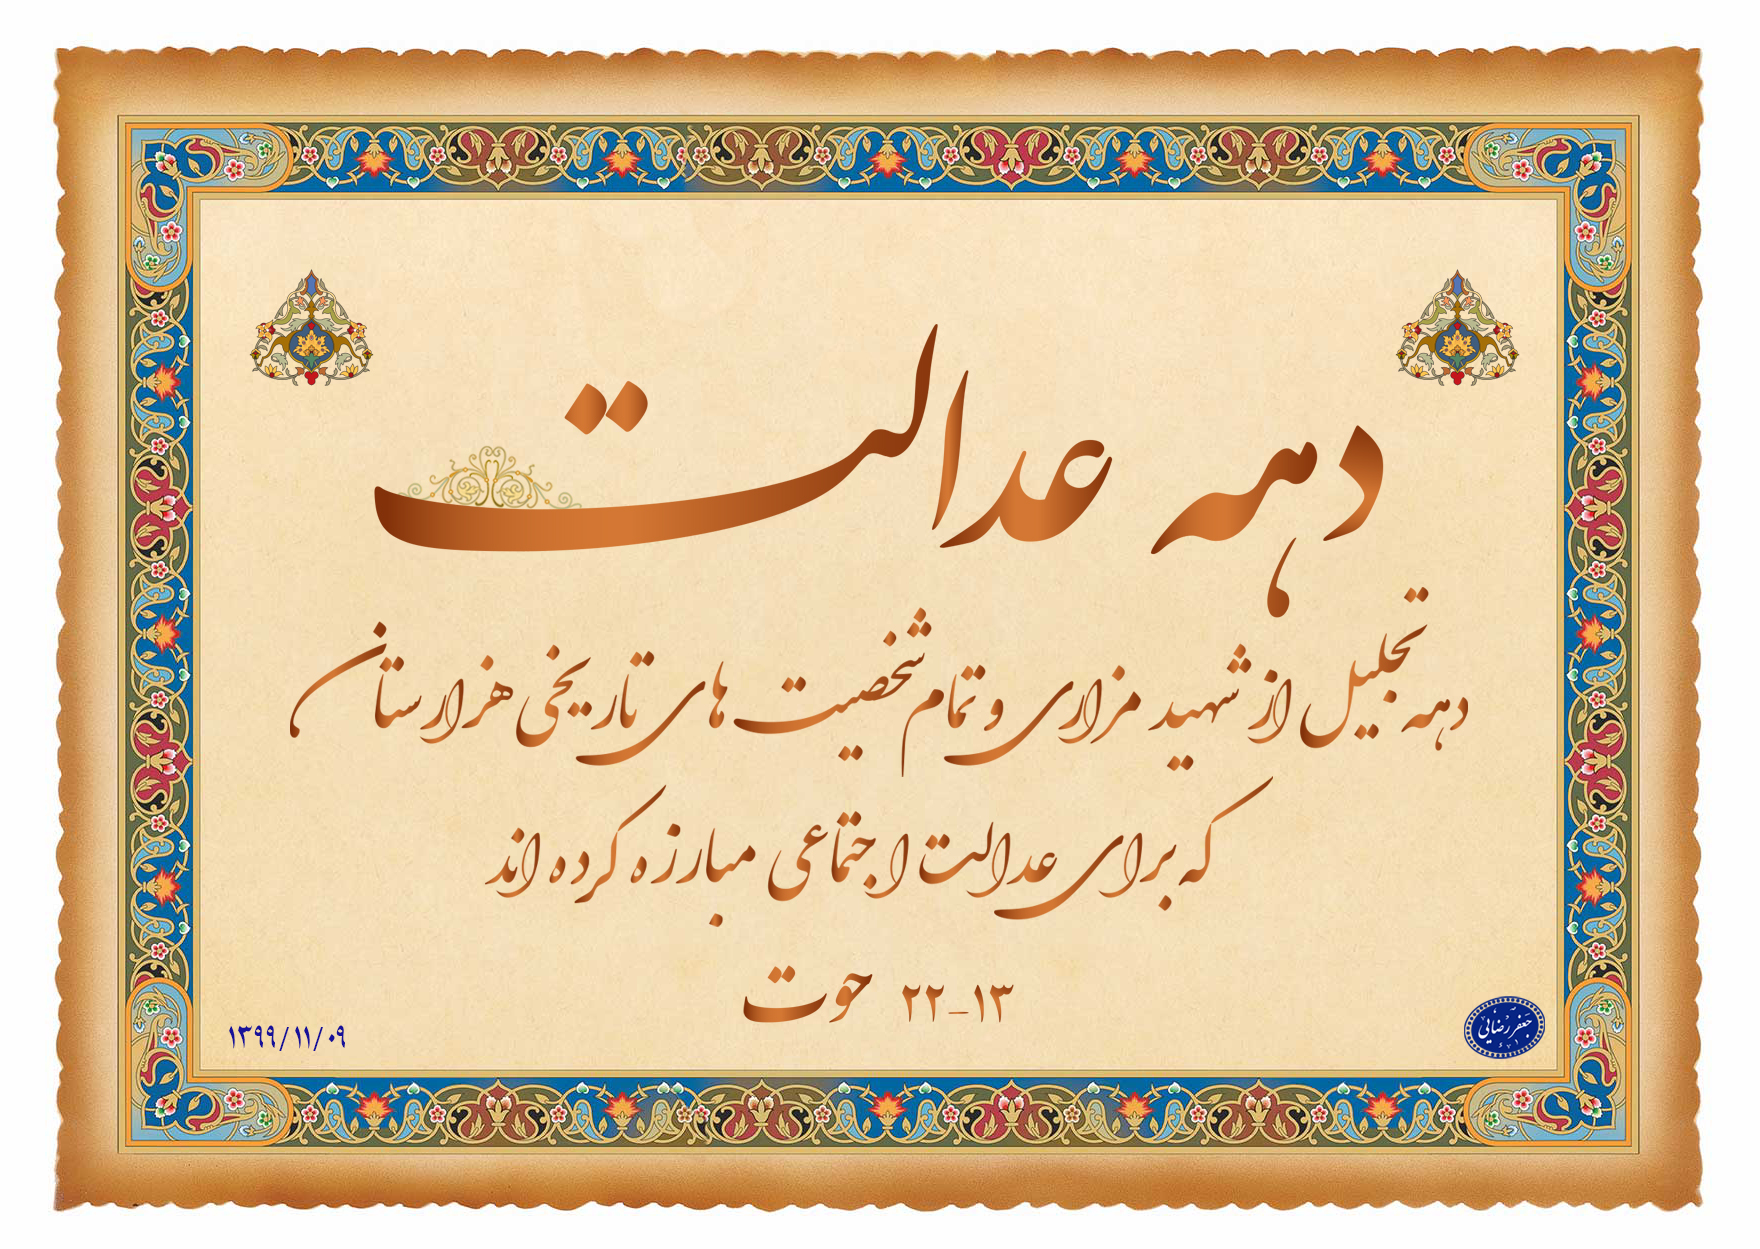 دهه عدالت
دهه تجلیل از شهید مزاری و تمام شخصیت های تاریخی هزارستان
که برای عدالت اجتماعی مبارزه کرده اند
۱۳-۲۲ حوت
۱۳۹۹/۱۱/۰۹
جعفر رضایی